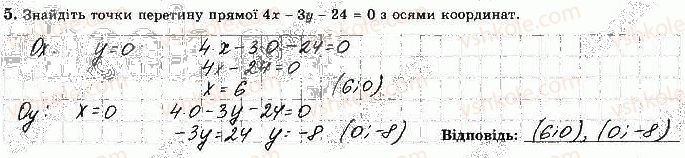 5. Знайдіть точки перетину прямої 4x − 3y − 24 = 0 з осями координат.
Ox: y=0 4x-3·0-24=0
4x-24=0
x=6 (6;0)
Oy: x=0 4·0-3y-24=0
-3y=24 y=-8 (0;-8) Відповідь: (6;0), (0;-8)